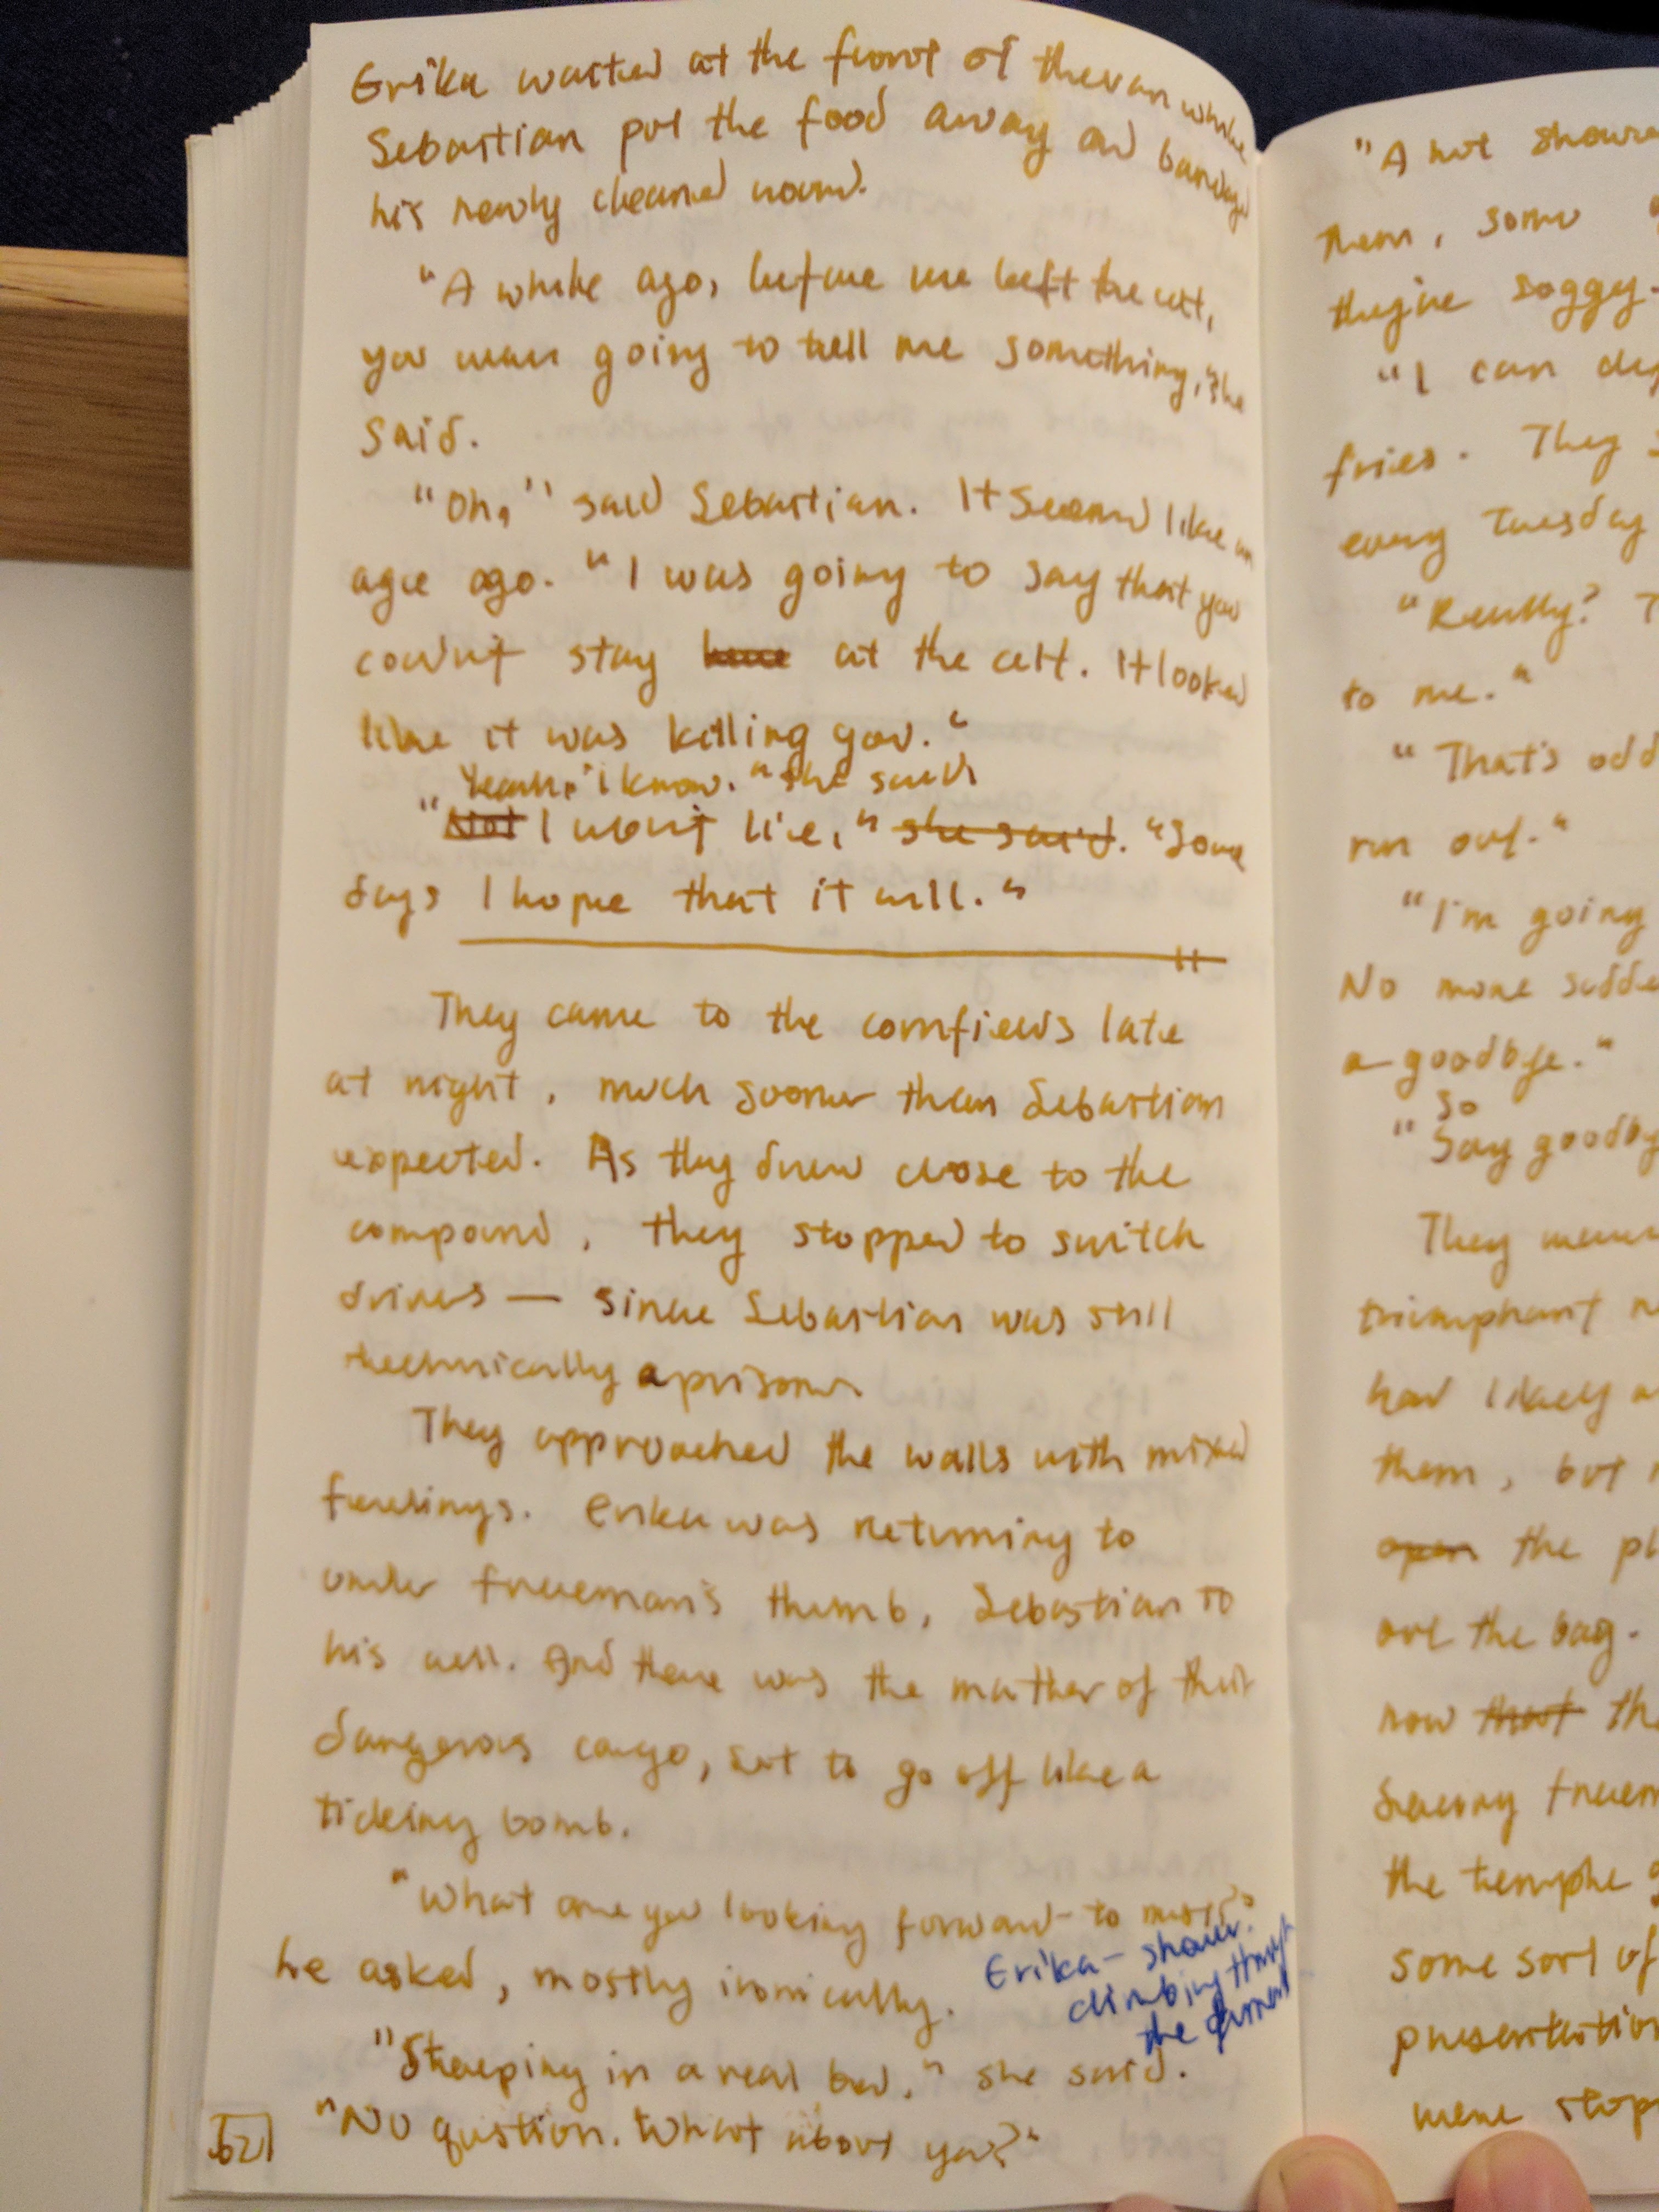 Erika waited at the front of the van while
Sebastian put the food away and bandaged
his newly cleaned wound.
"A while ago, before we left the cult,
you were going to tell me something," she
said.
"Oh," said Sebastian. It seemed like an
age ago. "I was going to say that you
couldn't stay here at the cult. It looked
like it was killing you."
"Yeah, I know." she said
"Not I won't lie," she said. "Some
days I hope that it will."
They came to the cornfields late
at night, much sooner than Sebastian
expected. As they drew close to the
compound, they stopped to switch
drivers — since Sebastian was still
technically a prisoner
They approached the walls with mixed
feelings. Erika was returning to
under Freeman's thumb, Sebastian to
his cell. And there was the matter of their
dangerous cargo, set to go off like a
ticking bomb.
"What are you looking forward to most?"
he asked, mostly ironically.
Erika - shower.
climbing through
the
"Sleeping in a real bed." she said.
"No question. What about you?"
62
"A hot
them, some
they're soggy.
"I can
fries. They
every Tuesday
"Really?
to me."
"That's odd
run out."
"I'm going
No more
a goodbye."
So
"Say
They were
triumphant
had likely
them, but
open the
out the bag.
now that
Freem
the temple
some sort of
presentation
were